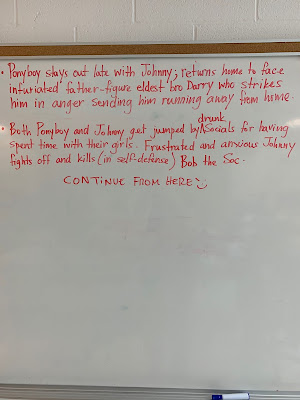 • Ponyboy stays out late with Johnny; returns home to face
infuriated father-figure eldest bro Darry who strikes
him in anger sending him running away from home.
drunk
• Both Ponyboy and Johnny get jumped by Socials for having
spent time with their girls. Frustrated and anxious Johnny
fights off and kills (in self-defense) Bob the Soc.
CONTINUE FROM HERE